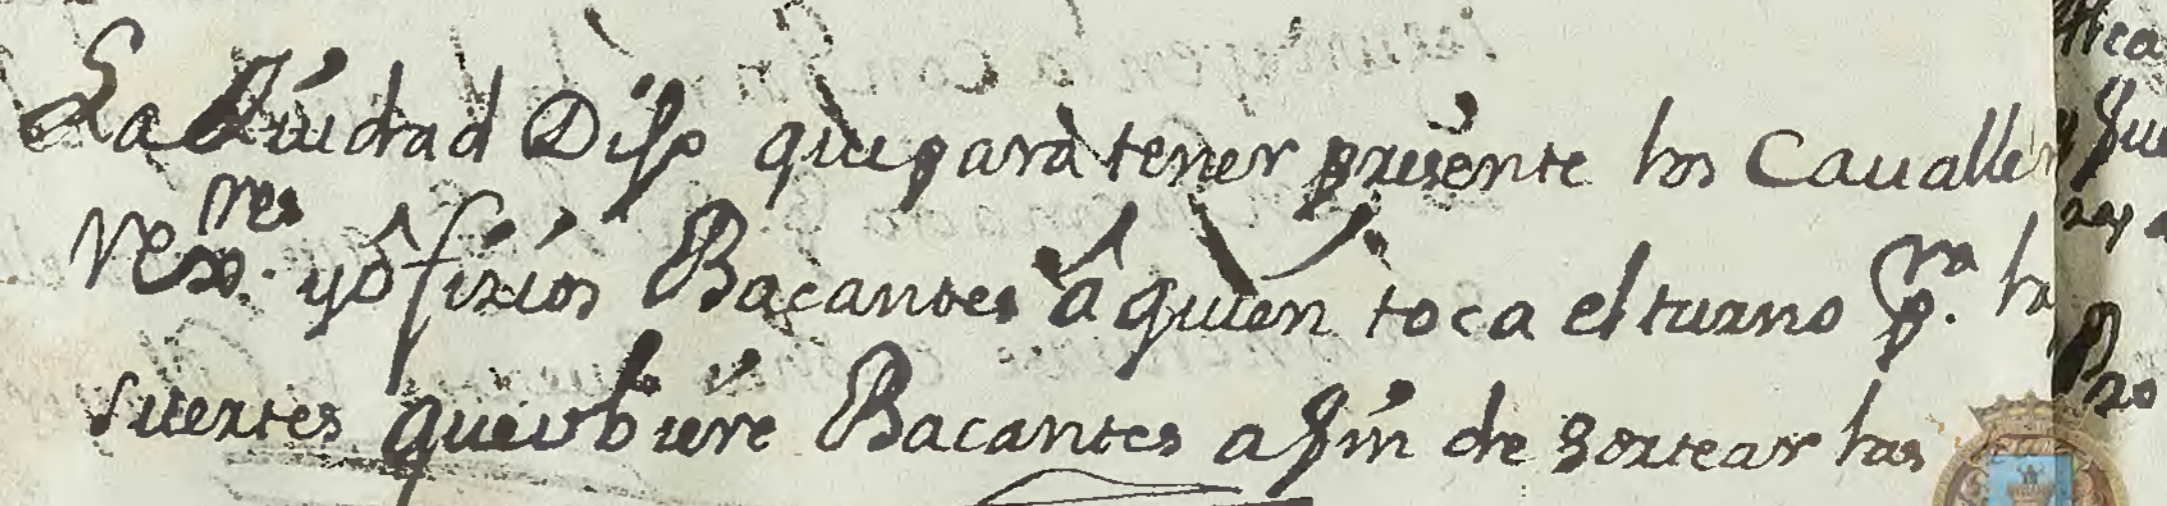 La Ciudad Dijo que para tener presente los Caualler
Res.res y ôficios Bacantes â quien toca el turno p.ra las
suertes que vbiere Bacantes a fin de sortear las